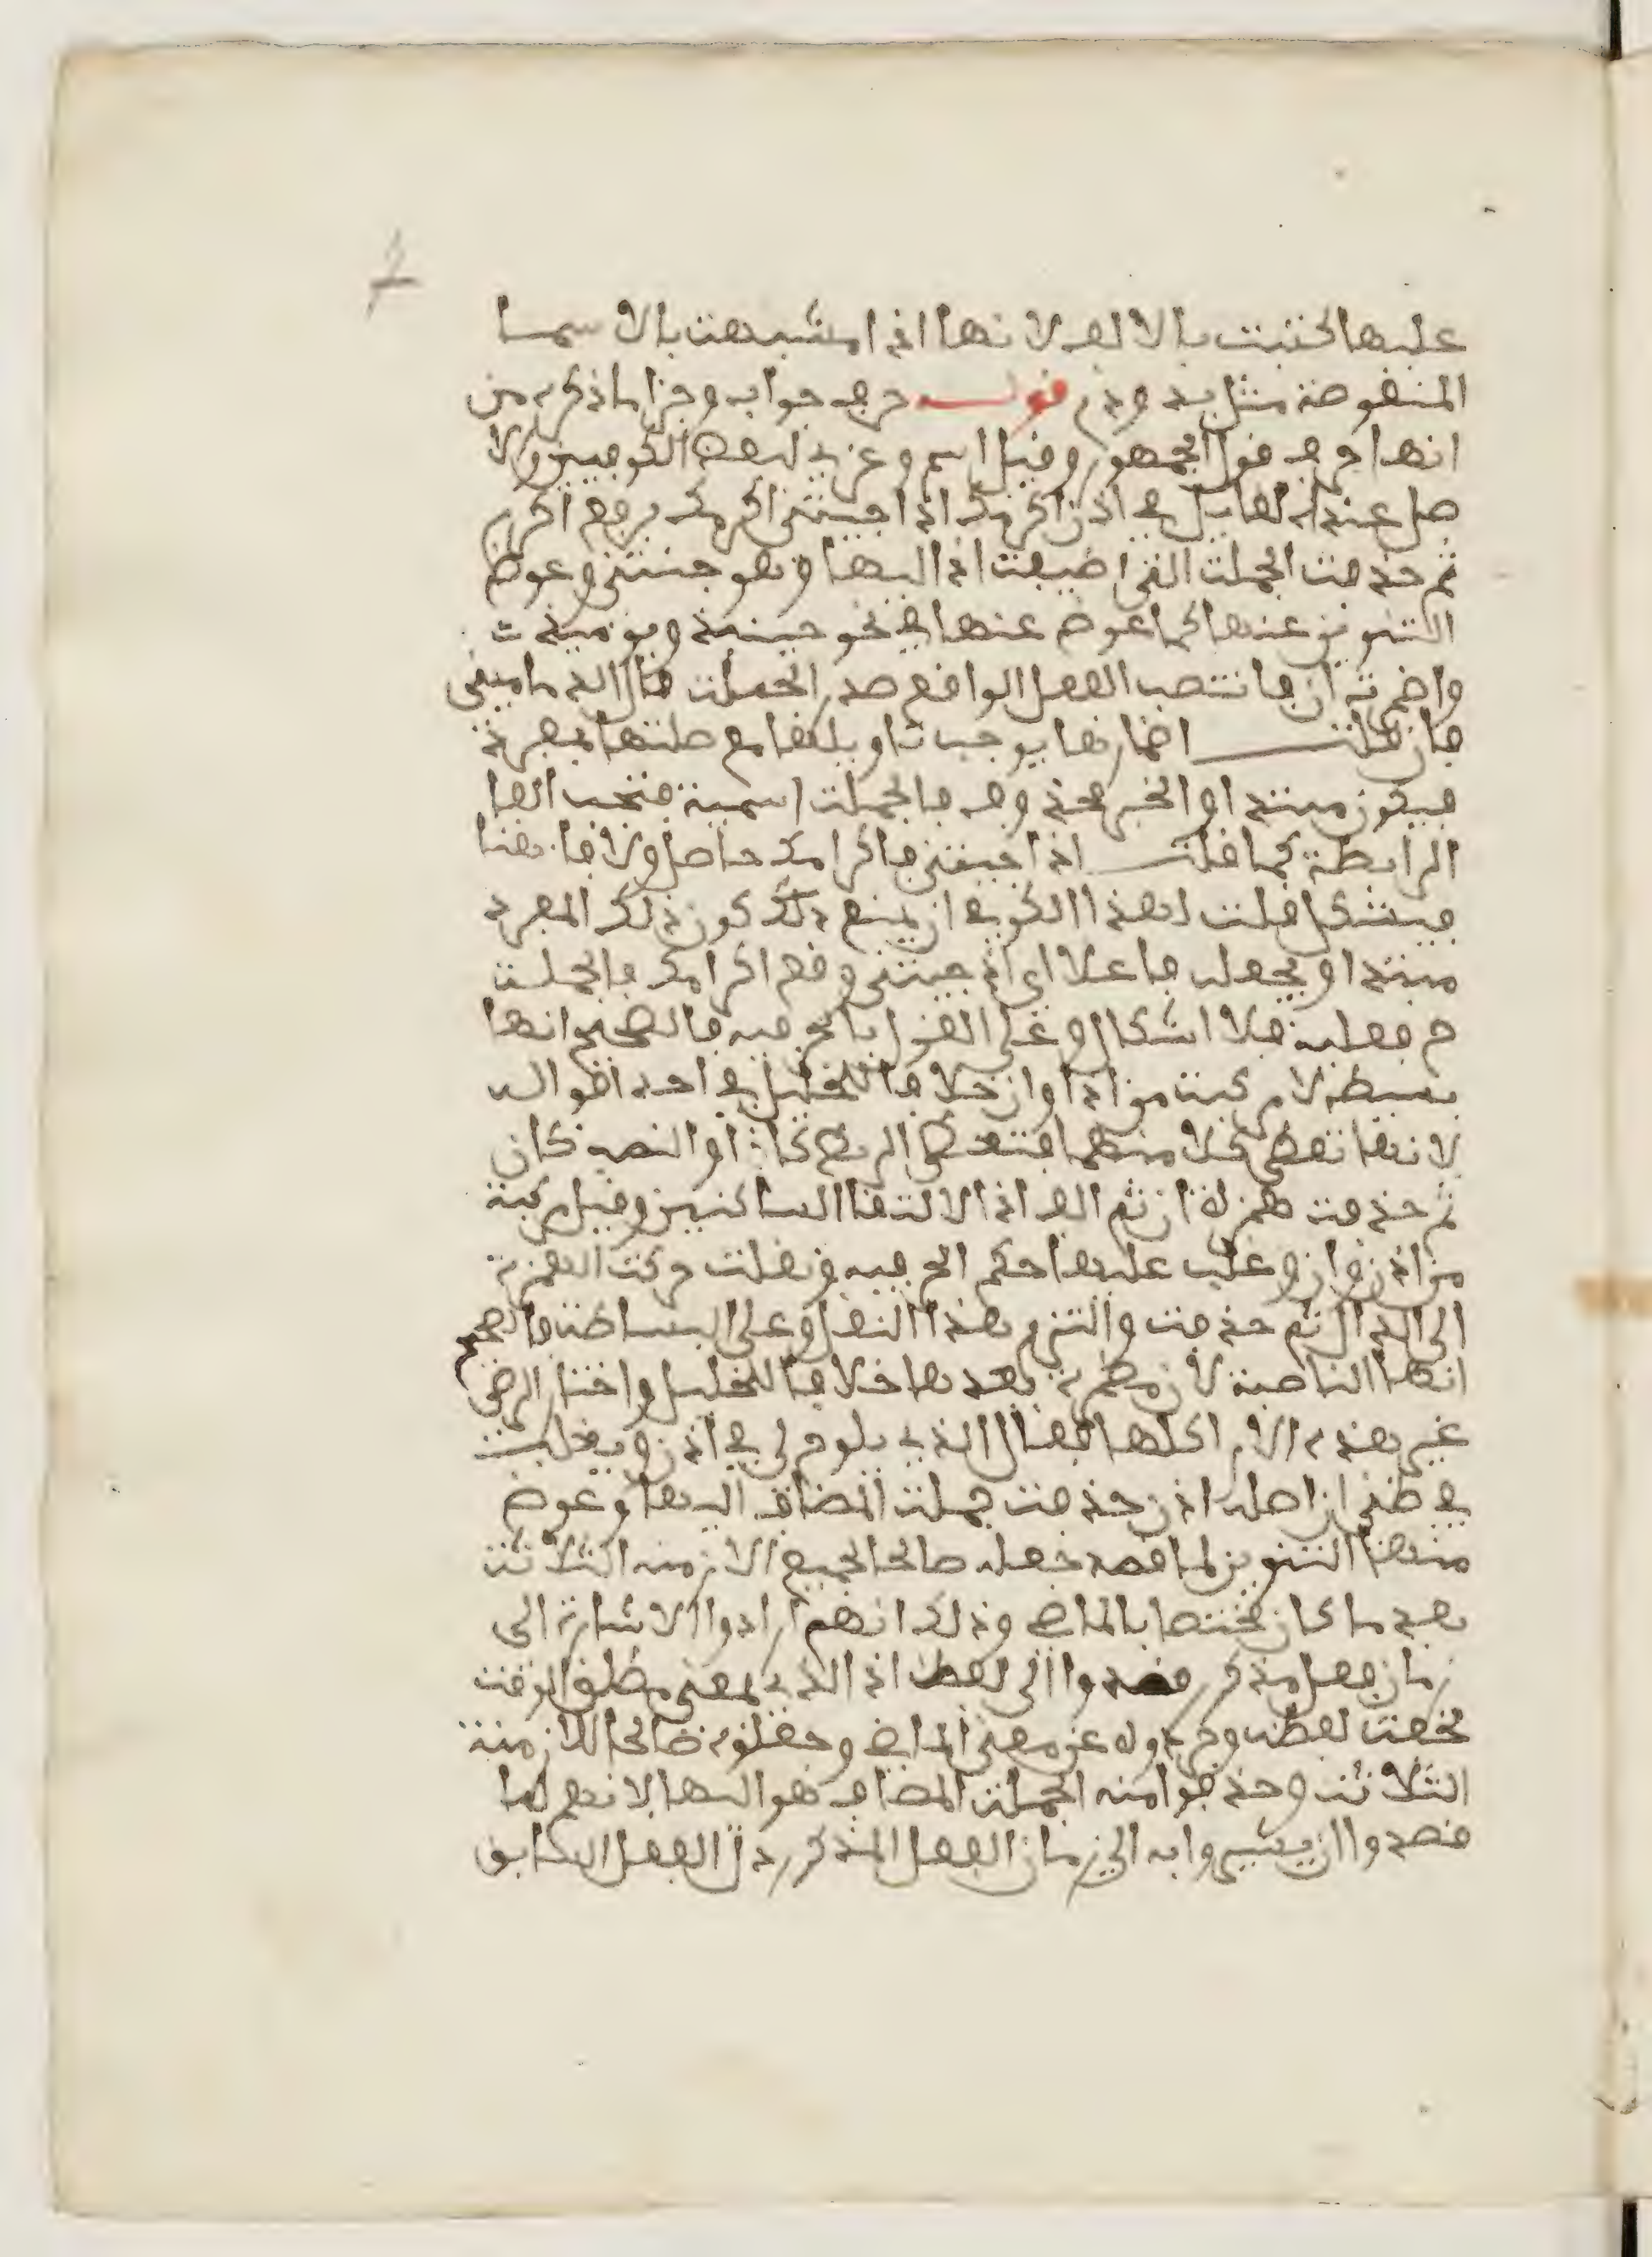 عليها لكتبت بالالف لانها اذا اشبهت بالاسما
المنقوصة مثل يد ودم قوله حرف جواب وجزا ما ذكره من
انها حرف قول الجمهور وقيل اسم وعزي لبعض الكوفيين والا
صل عند القايل في اذن اكرمك اذا جيتني اكرمك برفع اكرم
ثم حذفت الجملت التي اضيفت اذا اليها وهو جيتني وعوض
التنوين عنها كما عوض عنها في نحو حينيذ ويوميذ ت
واضمرت ان فانتصب الفعل الواقع صدر الجملت قال الدماميني
فان قلت اضمارها يوجب تاويلها مع صلتها بمفرد
فيكون مبتدا والخبر محذوف فالجملت اسمية فتجب الفا
الرابطة كما قلت اذا جيتني فاكرامك حاصل ولا فا هنا
فيشكل قلت لهذا الكوفي ان يمنع ذلك كون ذلك المفرد
مبتدا ويجعله فاعلا اي اذا جيتني وقع اكرامك فالجملت
ح فعلية فلا اشكال وعلى القول بالحرفيه فالصحيح انها
بسيطه لا مركبت من اذا وان خلافا للخليل في احد اقواله
لانها تعطي كلا منهما فتعطي الربط كاذا والنصب كان
ثم حذفت همزة ان ثم الف اذا لالتقا الساكنين وقيل مركبة
من اذ وان وغلب عليها حكم الحرفيه ونقلت حركت الهمزة
الى الذال ثم حذفت والتزم هذا النقل وعلى البساطت فالصحيح
انها الناصبة لا ان مضمرة بعدها خلافا للخليل واختار الرضي
غير هذه الاراكلها فقال الذي يلوح لي في اذن ويغلب
في ظني ان اصله اذ حذفت جملت المضاف اليها وعوض
منها التنوين لما قصد جعله صالحا لجميع الازمنه الثلاثت
بعد ما كان مختصا بالماضي وذلك انهم ارادوا الاشارة الى
زمان فعل مذكور فقصدوا الى لفظ اذ الذي بمعنى مطلق الوقت
لخفت لفظه وجردوه عن معنى الماضي وجعلوه صالحا للازمنة
الثلاثت وحذفوا منه الجملت المضاف هو اليها لانهم لما
قصدوا ان يشيروا به الى زمان الفعل المذكور دل الفعل السابق